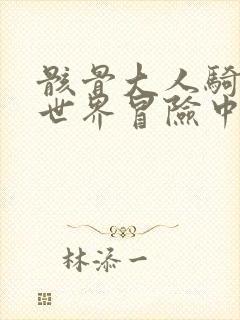 骸骨大人騎
世界冒險中
林添一